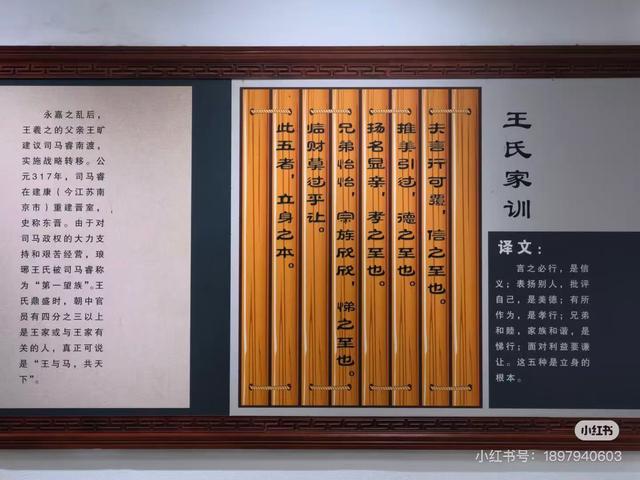 永嘉之乱后，
王羲之的父亲王旷
建议司马睿南渡，
实施战略转移。公
元317年，司马睿
在建康（今江苏南
京市）重建晋室，
史称东晋。由于对
司马政权的大力支
持和艰苦经营，琅
琊王氏被司马睿称
为“第一望族”。王
氏鼎盛时，朝中官
员有四分之三以上
是王家或与王家有
关的人，真正可说
是“王与马，共天
下”。
王氏家训
夫言行可覆，信之至也。
推美引过，德之至也。
扬名显亲，孝之至也。
兄弟怡怡，宗族欣欣，悌之至也。
临财莫过乎让。
此五者，立身之本。
译文：
言之必行，是信
义；表扬别人，批评
自己，是美德；有所
作为，是孝行；兄弟
和睦，家族和谐，是
悌行；面对利益要谦
让。这五种是立身的
根本。
小红书
小红书号：1897940603